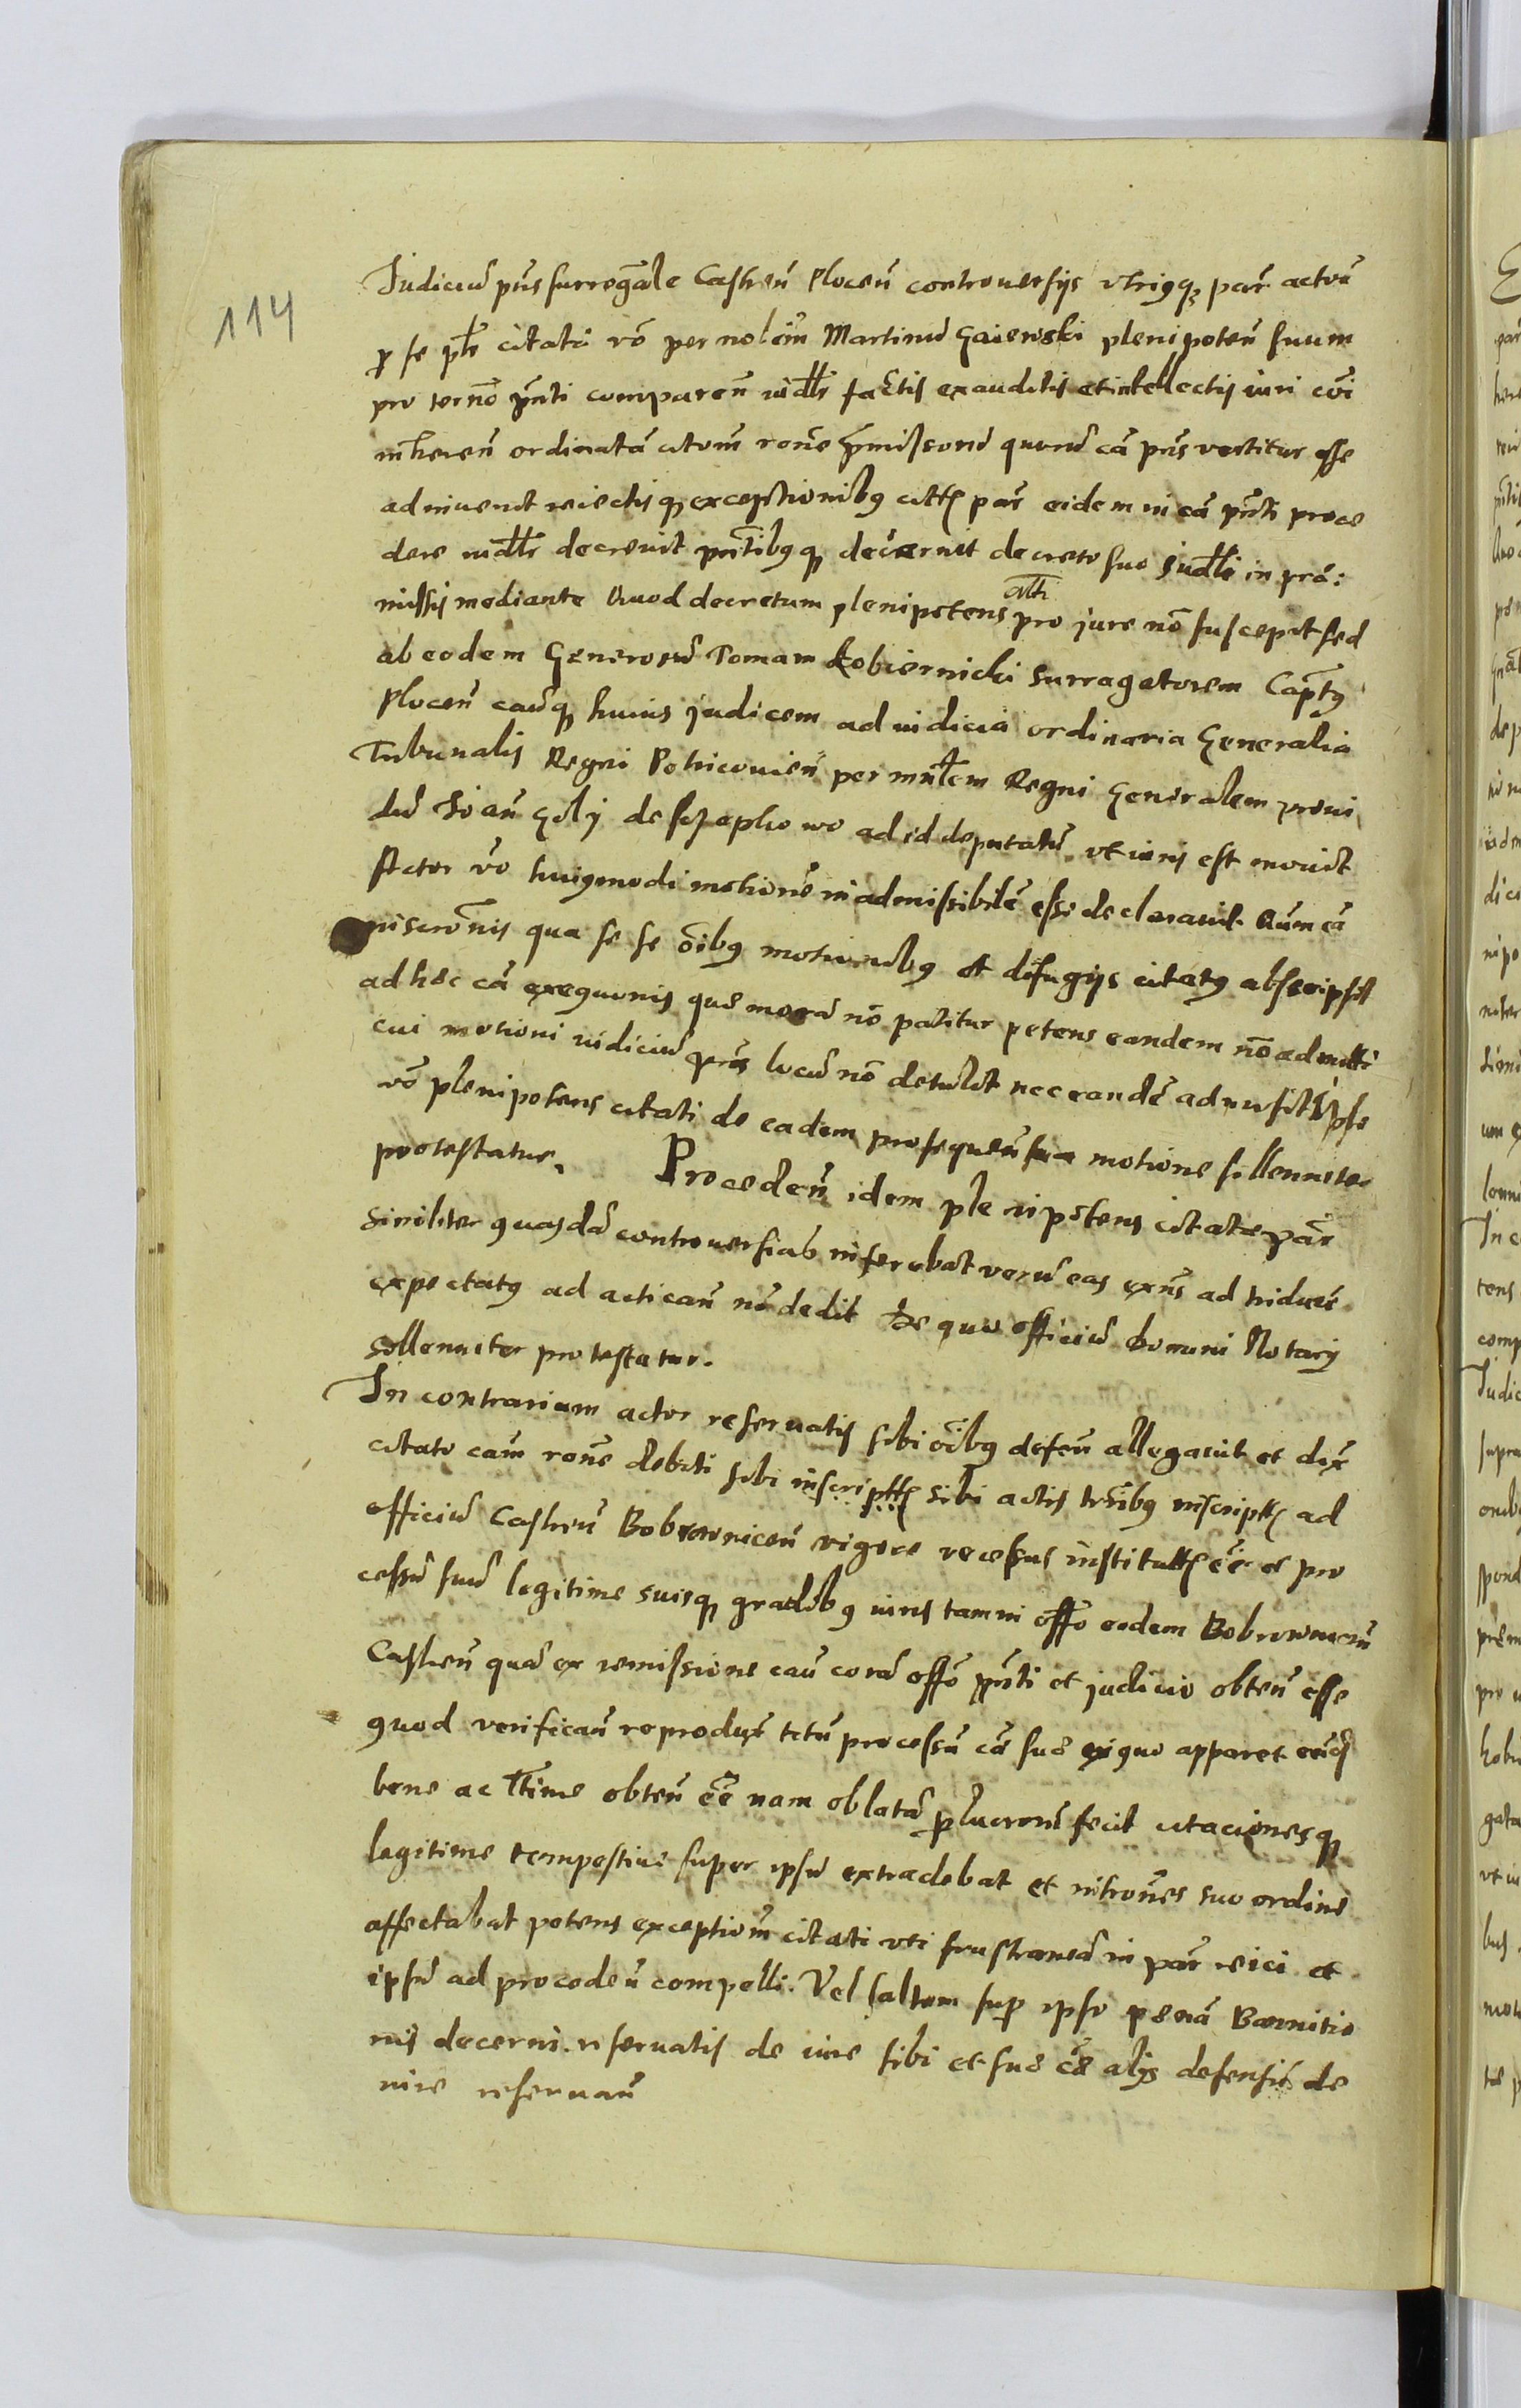 114
Judiciu pns surrogale Castren Plocen controuersijs vtriqq par actori
p se plr citati vo per nobem Martinu Gaiewski plenipoten suum
pro termo pnti comparen iudlr factis exauditis et intellectis iuri coi
inheren ordinata citom rone pmissoru quoru ca pns vertitur esse
adinuenit reiectisq exceptionibq citti par eidem in ca pnti proce
dere iudlr decreuit pntibusq decernit decreto suo judlr in prae:
missis mediante Quod decretum plenipotens citti pro jure no suscepit sed
ab eodem Generosu Tomam Kobiernicki surrogatorem Captq
Plocen causq huius judicem ad iudicia ordinaria Generalia
Tribunalis Regni Petricouien per mnlem Regni Generalem proui
du Joan Goly de ad id deputatu vt iuris est mouit
Actor vo huiqmodi motione inadmissibile esse declarauit Quum ca
inscronis qua se se oibq motionibq et difugijs citatq abscripsit
ad hoc ca exequonis quae mora no patitur petens eandem no admitti
cui motioni iudiciu pns locu no detulit nec eande admisit Ipse
vo plenipotens citati de eadem prosequen sua motione sollenniter
protestatur. Proceden idem plenipotens citatae par
similiter quasda controuersias inferebat veru eas exns ad triduu
expectatq ad actican no dedit de quo officiu domini Notarij
sollenniter protestatur.
In contrarium actor reseruatis sibi oibq defen allegauit et dix
citato cam rone debiti sibi inscriptti sibi actis trribq inscriptti ad
officiu Castren Bobrownicen vigore recessus institutti ee et pro
cessu suu legitime suisq gradibq iuris tam in offo eodem Bobrownicen
Castren qua ex remissione cau cora offo pnti et judicio obten esse
quod verifican reprodux totu processu ca suae ex quo apparet eudq
bene ac ltime obten ee nam oblata p lucroru fecit citacionesq
legitime tempestiue super ipsu extradebat et nitrones suo ordine
affectabat petens exceptiom citati vti frustranea in par reici et
ipsu ad proceden compelli. Vel saltem sup ipso poena Bannitio
nis decerni. reseruatis de iure sibi et suae ca alijs defensis de
iure reseruan